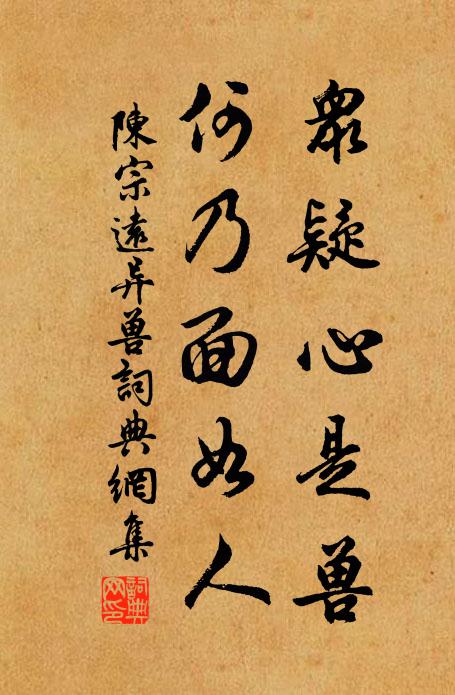 眾疑心是兽
何乃面如人
陳宗遠异兽詞典網集
詞典网印